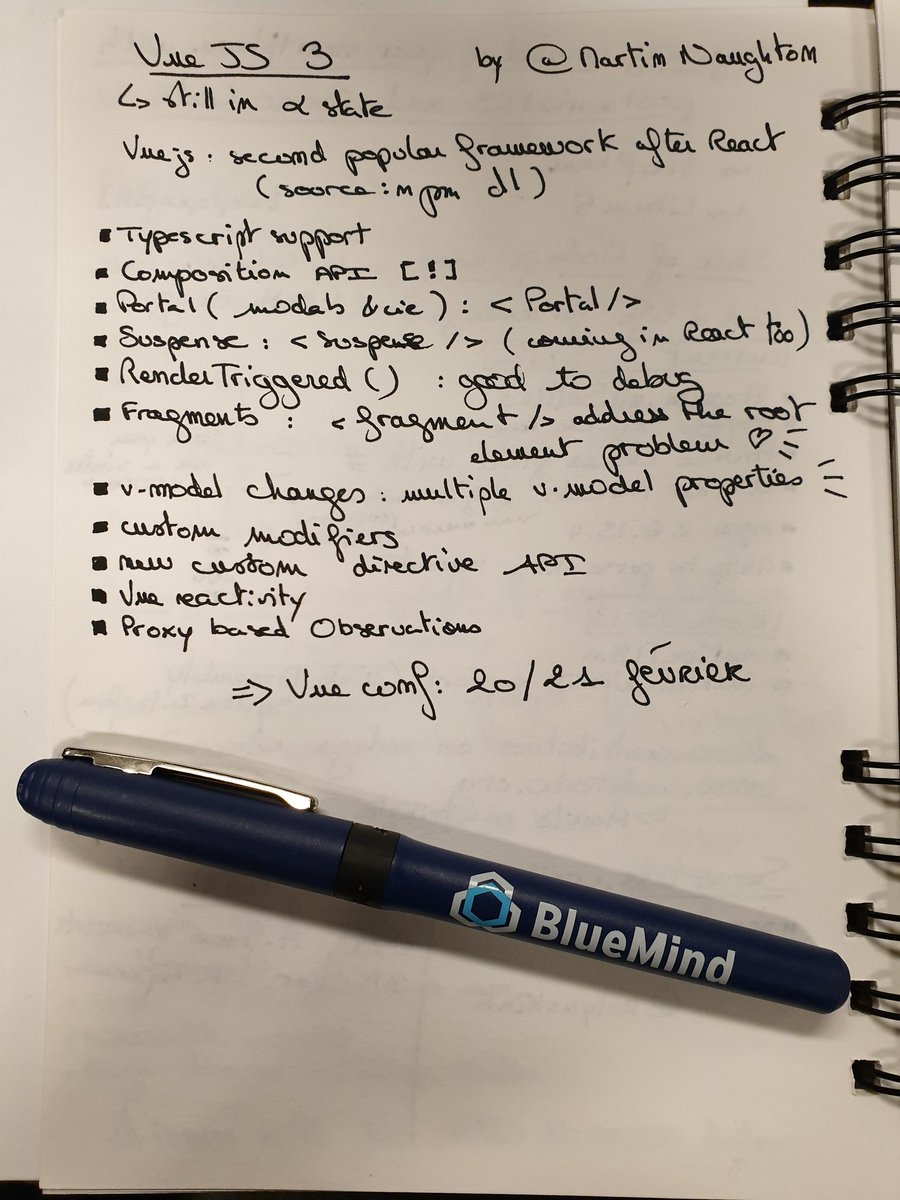 Vue JS 3 by @Martin Naughton
↳ still in α state
Vue.js : second popular framework after React
(source : npm dl)
▪ Typescript support
▪ Composition API [!]
▪ Portal ( modals & cie ) : < Portal />
▪ Suspense : < suspense /> ( coming in React too )
▪ RenderTriggered () : good to debug
▪ Fragments : < fragment /> address the root
element problem ♡
▪ v-model changes : multiple v.model properties
▪ custom modifiers
▪ new custom directive API
▪ Vue reactivity
▪ Proxy based Observations
=> Vue conf : 20/21 février
BlueMind